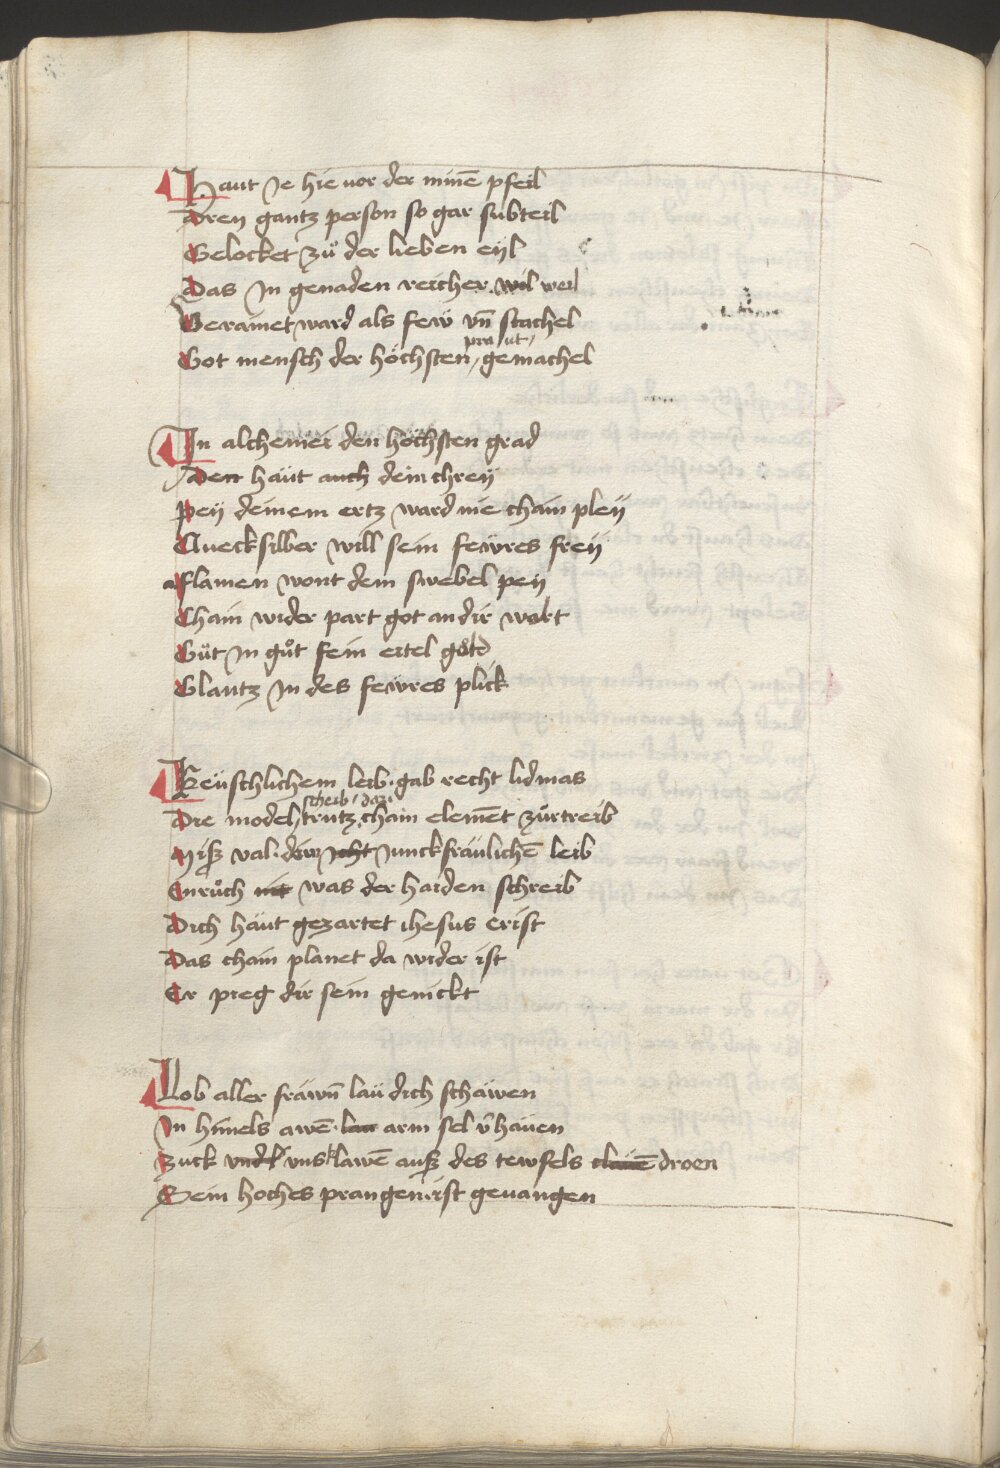 Haut Je hie vor der minē pfeil
Drey gantz person so gar subteil
Gelocket zů der lieben eyl
Das In genaden reicher wil weil
Verainet ward als few vñ stachel
Got mensch der höchsten praut gemachel
In alchemei den höchsten grad
Den haüt auch dein chrey
Pey deinem ertz ward nie chain pley
Quecksilber will sein fewres frey
Flamen wont dem swebel pey
Chain wider part got an dir wort
Güt In gůt fein eitel gold
Glantz In des fewres plick
Keüschlichem leib gab recht lidmas
Die model scheib daz chain elemēt zürtreib
val junckfräulichē leib
Enrůch nit was der haiden schreib
Dich haüt gezartet ihesus crist
Das chain planet da wider ist
Er preg dir sein genickt
Lob aller fräwn̄ laü dich schäwen
In himels awē lau arm sel v̄hauen
Zuck vnd vns klawē auß des tewfels clauē droen
Sein hoches prangen ist geuangen